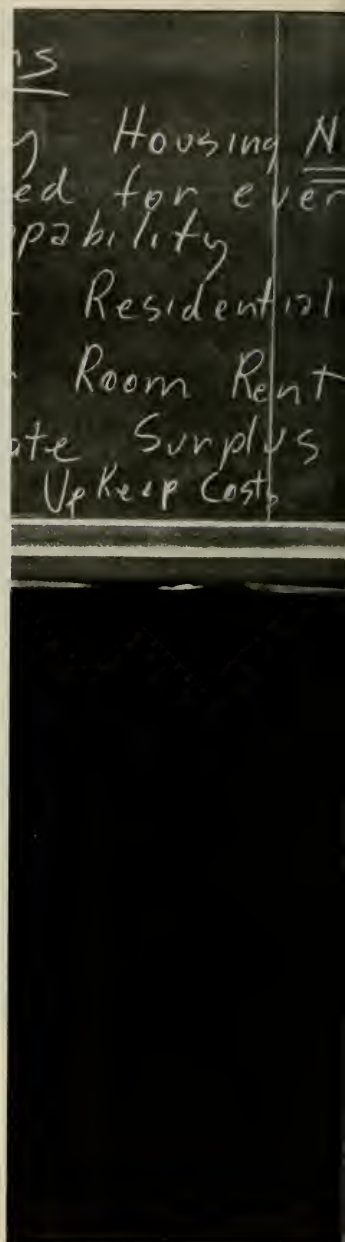 ns
y Housing N
ed for ever
pability
Residential
Room Rent
ate Surplus
UpKeep Costs